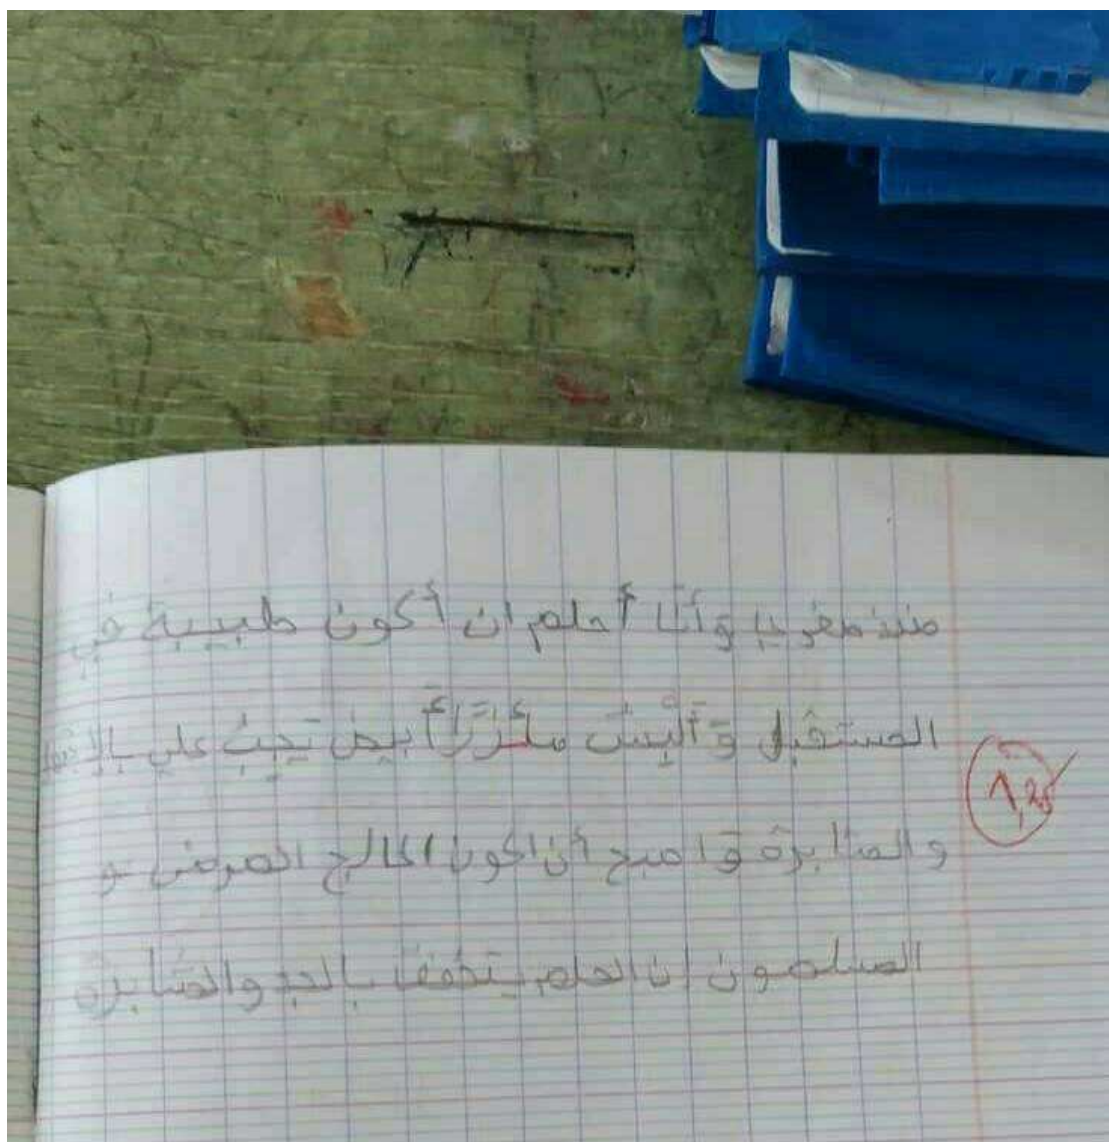 منذ صغري وأنا أحلم ان أكون طبيبة في
المستقبل وَألْبَسَ مأزَرًا أبيض يَجِبُ علي بالإجتها
والمثابرة وَاصبح أن اكون اعالج المرضى و
المسلمون ان الحلم يتحقق بالجد والمثابرة
1,25